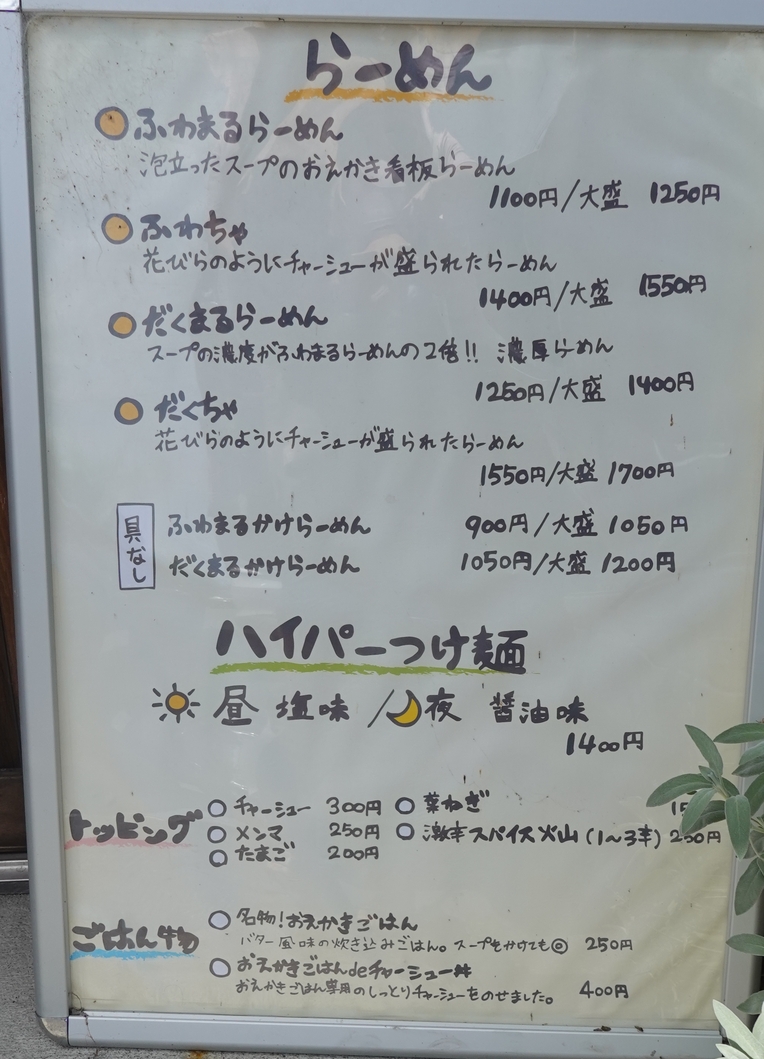 らーめん
ふわまるらーめん
泡立ったスープのおえかき看板らーめん
1100円/大盛 1250円
ふわちゃ
花びらのようにチャーシューが盛られたらーめん
1400円/大盛 1550円
だくまるらーめん
スープの濃度がふわまるらーめんの2倍!! 濃厚らーめん
1250円/大盛 1400円
だくちゃ
花びらのようにチャーシューが盛られたらーめん
1550円/大盛 1700円
具なし
ふわまるかけらーめん 900円/大盛 1050円
だくまるかけらーめん 1050円/大盛 1200円
ハイパーつけ麺
昼 塩味 / 夜 醤油味
1400円
トッピング
チャーシュー 300円
メンマ 250円
たまご 200円
葉ねぎ
激辛スパイス火山(1〜3辛) 250円
ごはん物
名物!おえかきごはん
バター風味の炊き込みごはん。スープをかけても◎ 250円
おえかきごはんdeチャーシュー丼
おえかきごはん専用のしっとりチャーシューをのせました。 400円